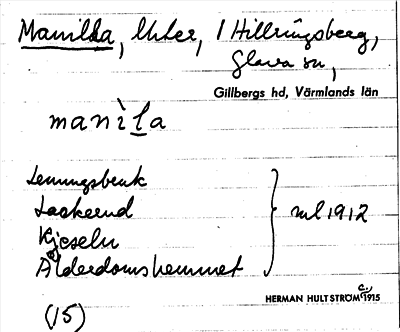 Manilla, Uher, / Hillringsberg,
Glava sn,
Gillbergs hd, Värmlands län
manìla
Lenungsbruk
Laskerud
Kjeseln
Ålderdomshemmet
ml 1912
HERMAN HULTSTRÖM c. 1915
(15)